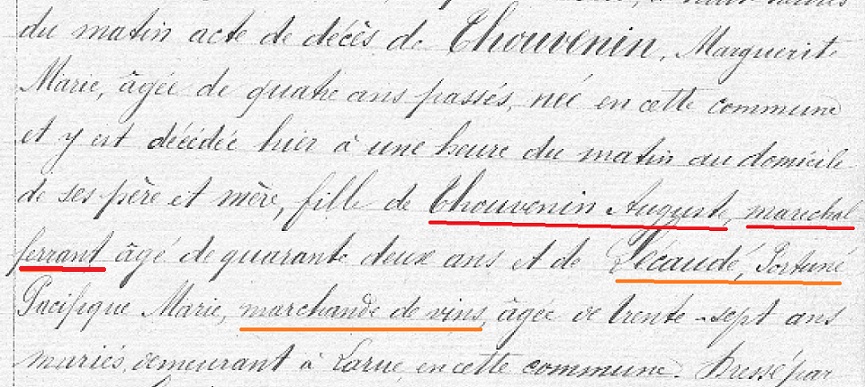 du matin acte de décès de Thouvenin, Marguerite
Marie, âgée de quatre ans passés, née en cette commune
et y est décédée hier à une heure du matin au domicile
de ses père et mère, fille de Thouvenin Auguste, marechal
ferrant âgé de quarante deux ans et de Lécaudé, Fortuné
Pacifique Marie, marchande de vins, âgée de trente-sept ans
mariés, demeurant à Larue, en cette commune. Dressé par